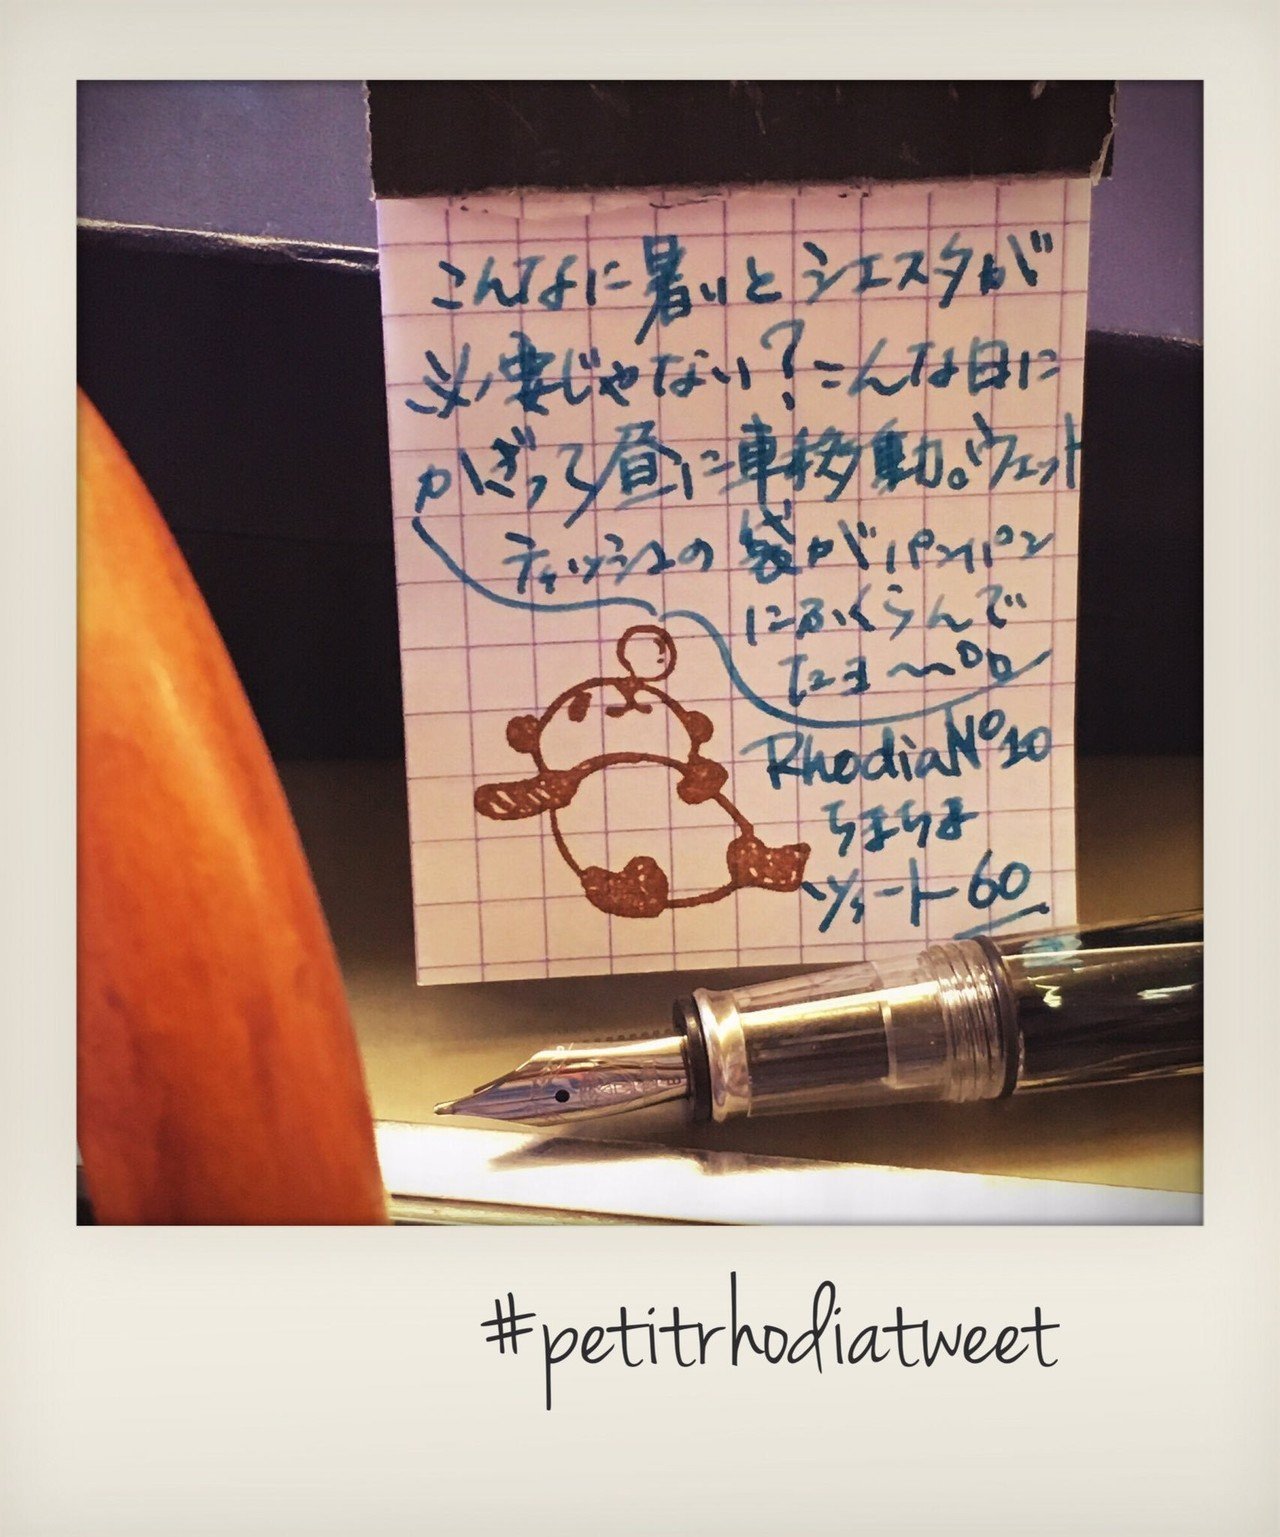 こんなに暑いとシエスタが
必要じゃない？こんな日に
かぎって昼に車移動。ウェット
ティッシュの袋がパンパン
にふくらんで
たヨ〜
Rhodia No10
ちまちま
ツイート60
#petitrhodiatweet